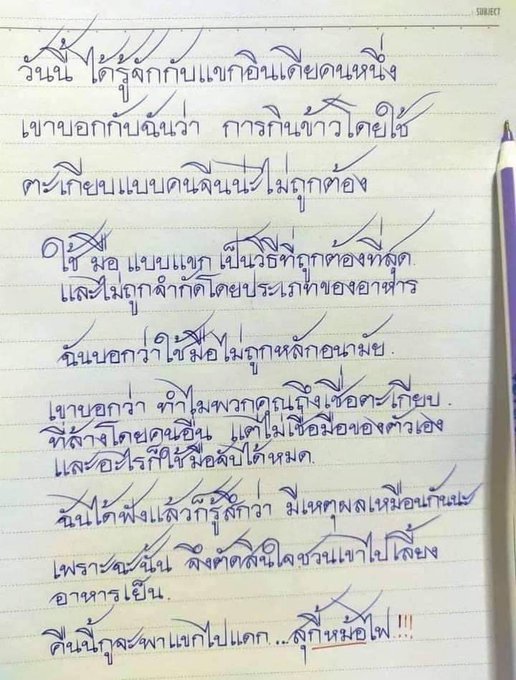 SUBJECT
วันนี้ ได้รู้จักกับแขกอินเดียคนหนึ่ง
เขาบอกกับฉันว่า การกินข้าวโดยใช้
ตะเกียบแบบคนจีนน่ะไม่ถูกต้อง
ใช้ มือ แบบแขก เป็นวิธีที่ถูกต้องที่สุด
และไม่ถูกจำกัดโดยประเภทของอาหาร
ฉันบอกว่าใช้มือไม่ถูกหลักอนามัย.
เขาบอกว่า ทำไมพวกคุณถึงเชื่อตะเกียบ.
ที่ล้างโดยคนอื่น แต่ไม่เชื่อมือของตัวเอง
และอะไรก็ใช้มือจับได้หมด.
ฉันได้ฟังแล้วก็รู้สึกว่า มีเหตุผลเหมือนกันนะ
เพราะฉะนั้น จึงตัดสินใจชวนเขาไปเลี้ยง
อาหารเย็น.
คืนนี้กูจะพาแขกไปแดก...สุกี้หม้อไฟ!!!